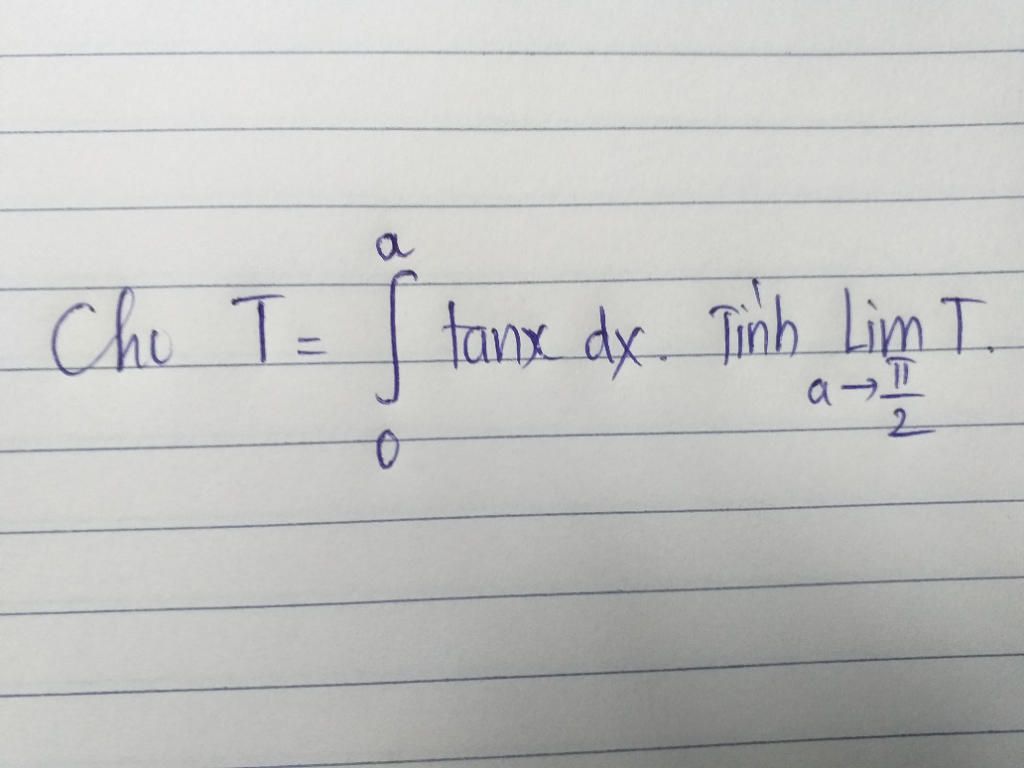 Cho T = ∫₀ᵃ tanx dx. Tính Lim_{a→π/2} T.